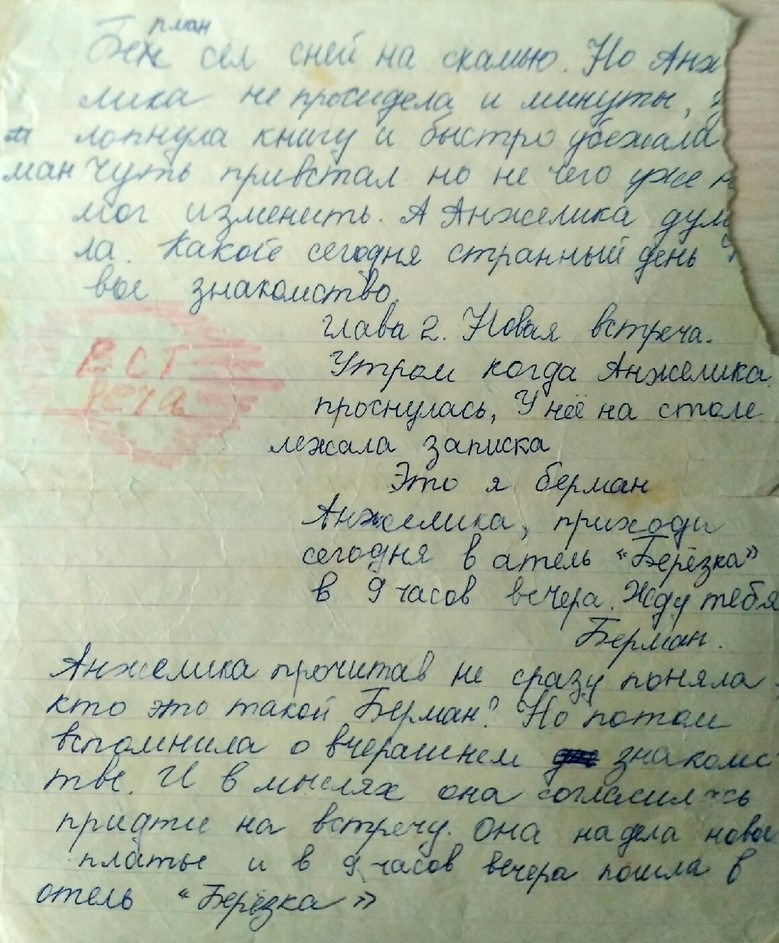 план
Бен сел сней на скамью. Но Анж
лика не просидела и минуты,
лопнула книгу и быстро убежала
ман чуть привстал но не чего уже н
мог изменить. А Анжелика дум
ла. Какой сегодня странный день
вое знакомство.
глава 2. Новая встреча.
ВСТ
реча
Утром когда Анжелика
проснулась, У неё на столе
лежала записка
Это я берман
Анжелика, приходи
сегодня в атель "Берёзка"
в 9 часов вечера. Жду тебя
Берман.
Анжелика прочитав не сразу поняла
кто это такой Берман? Но потом
вспомнила о вчерашнем знакомс
тве. И в мыслях она согласилась
придти на встречу. Она надела ново
платье и в 9 часов вечера пошла в
отель "Берёзка"